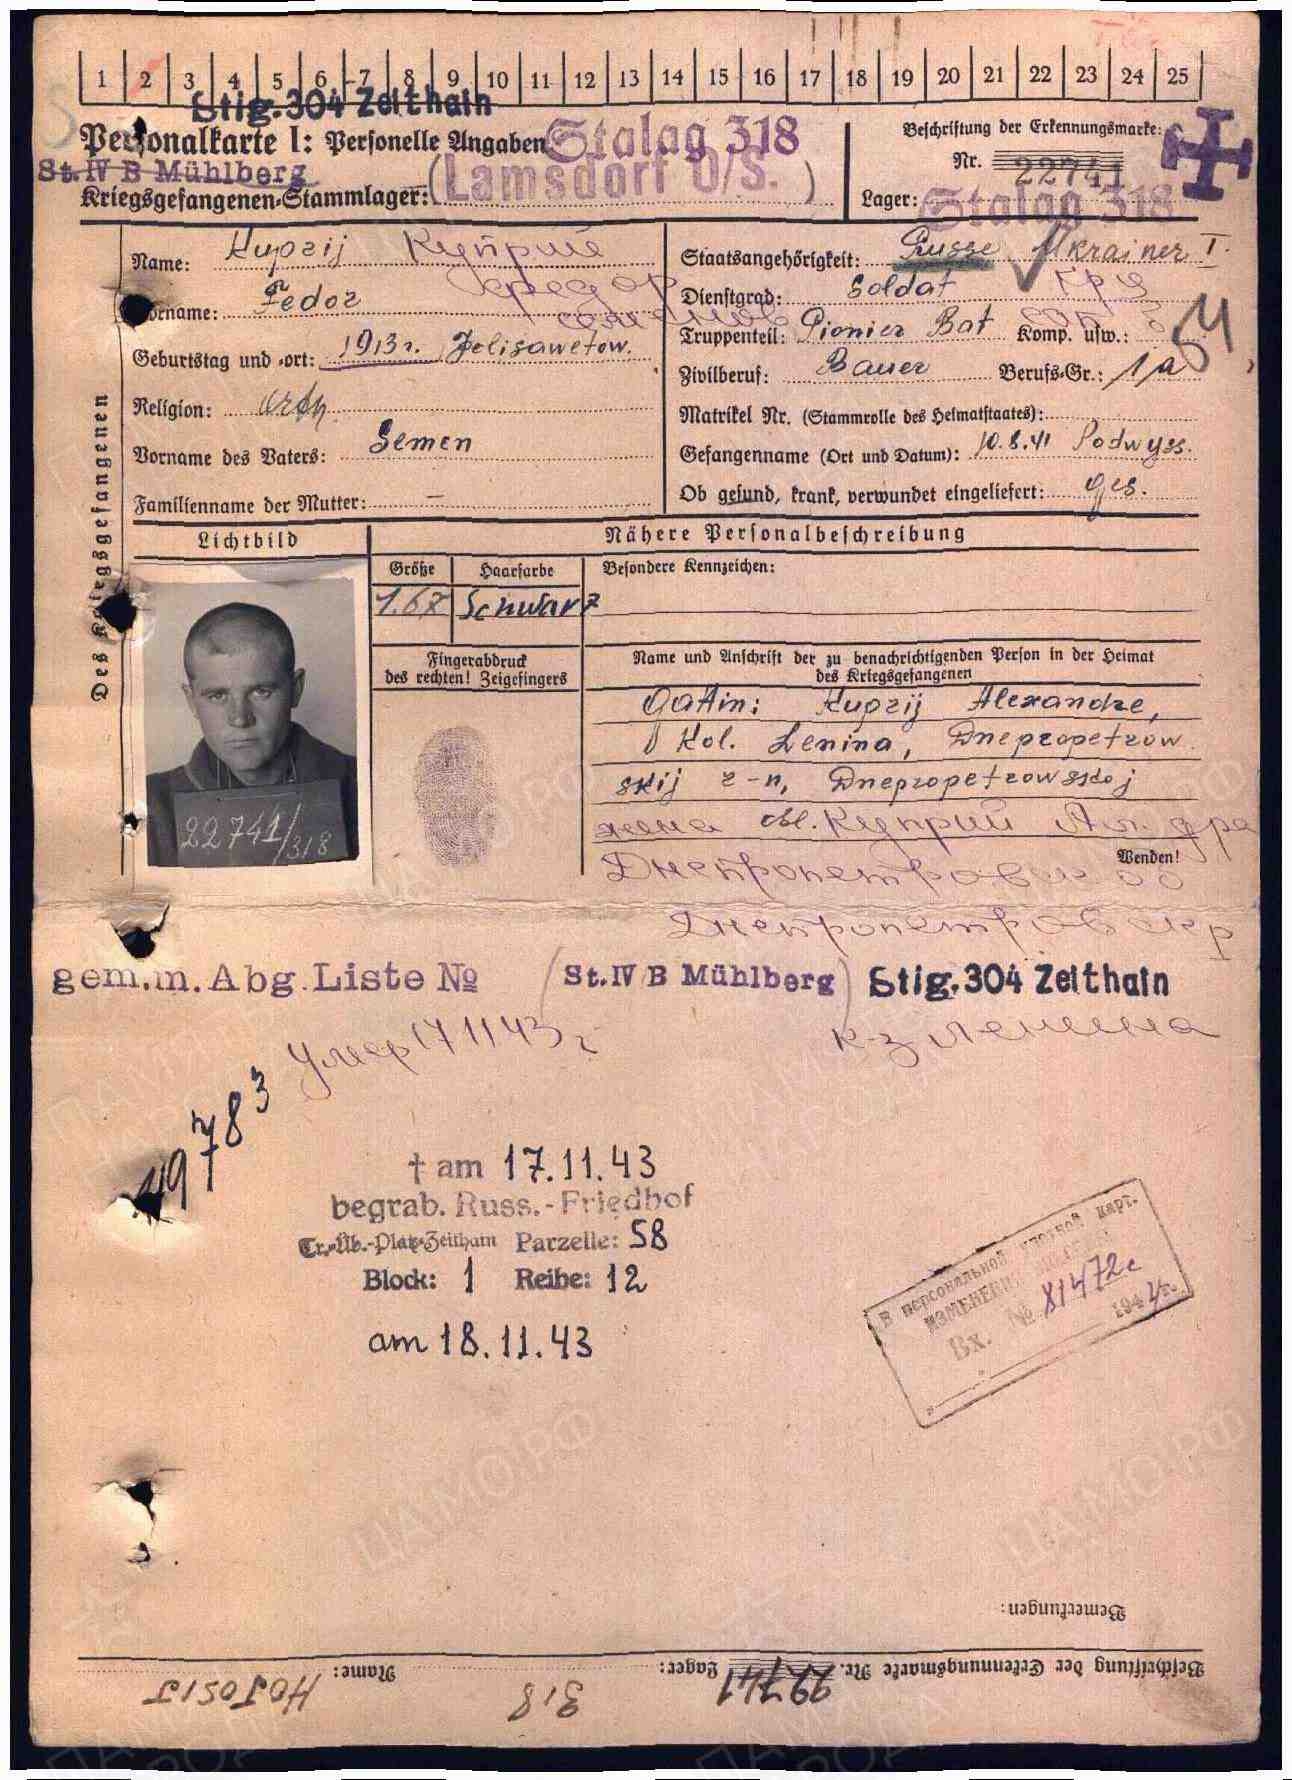 1 2 3 4 5 6 7 8 9 10 11 12 13 14 15 16 17 18 19 20 21 22 23 24 25
Stlg. 304 Zeithain
Personalkarte I: Personelle Angaben
Stalag 318
Beschriftung der Erkennungsmarke:
St. IV B Mühlberg
(Lamsdorf O/S.)
Nr. 22741
Kriegsgefangenen-Stammlager:
Lager: Stalag 318
Des Kriegsgefangenen
Name: Kuprij Куприй
Vorname: Fedor Федор
Geburtstag und -ort: 1913 r. Jelisawetow.
Religion: orth
Vorname des Vaters: Semen
Familienname der Mutter: –
Staatsangehörigkeit: Russe Ukrainer I.
Dienstgrad: Soldat
Truppenteil: Pionier Bat Komp. usw.:
Zivilberuf: Bauer Berufs-Gr.: 1a
Matrikel Nr. (Stammrolle des Heimatstaates):
Gefangenname (Ort und Datum): 10.8.41 Podwyss.
Ob gesund, krank, verwundet eingeliefert: ges.
Lichtbild
Nähere Personalbeschreibung
Größe Haarfarbe Besondere Kennzeichen:
1.67 Schwarz
Fingerabdruck
des rechten! Zeigefingers
Name und Anschrift der zu benachrichtigenden Person in der Heimat
des Kriegsgefangenen
Gattin: Kuprij Alexandre,
Kol. Lenina, Dnepropetrow
skij r-n, Dnepropetrowskoj
obl.
жена Куприй
Wenden!
22741/318
Днепропетровск
Днепропетровск р
gem. m. Abg. Liste №
(St. IV B Mühlberg)
Stlg. 304 Zeithain
умер 17 11 43 г
к-з Ленина
† am 17.11.43
begrab. Russ.-Friedhof
Tr.-Üb.-Platz-Zeithain Parzelle: 58
Block: 1 Reihe: 12
am 18.11.43
В персональной учетной карт.
ИЗМЕНЕНИЯ
Вх. № 81472с
194 г.
Bemerkungen:
Beschriftung der Erkennungsmarke Nr. 22741 Lager: 318 Name:
ПАМЯТЬ НАРОДА
ЦАМО.РФ